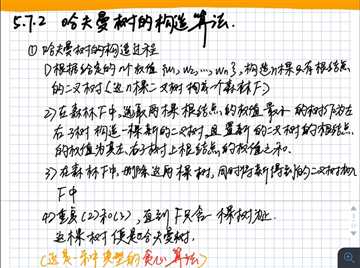 5.7.2 哈夫曼树的构造算法.
① 哈夫曼树的构造过程
1) 根据给定的n个权值{w₁, w₂, …, wₙ}, 构造n棵只有根结点
的二叉树(这n棵二叉树构成一个森林F)
2) 在森林F中, 选取两棵根结点的权值最小的树作为左
右子树构造一棵新的二叉树, 且置新的二叉树的根结点
的权值为其左右子树上根结点的权值之和.
3) 在森林F中, 删除这两棵树, 同时将新得到的二叉树加入
F中
4) 重复(2)和(3), 直到F只含一棵树为止.
这棵树便是哈夫曼树.
(这是一种典型的贪心算法)